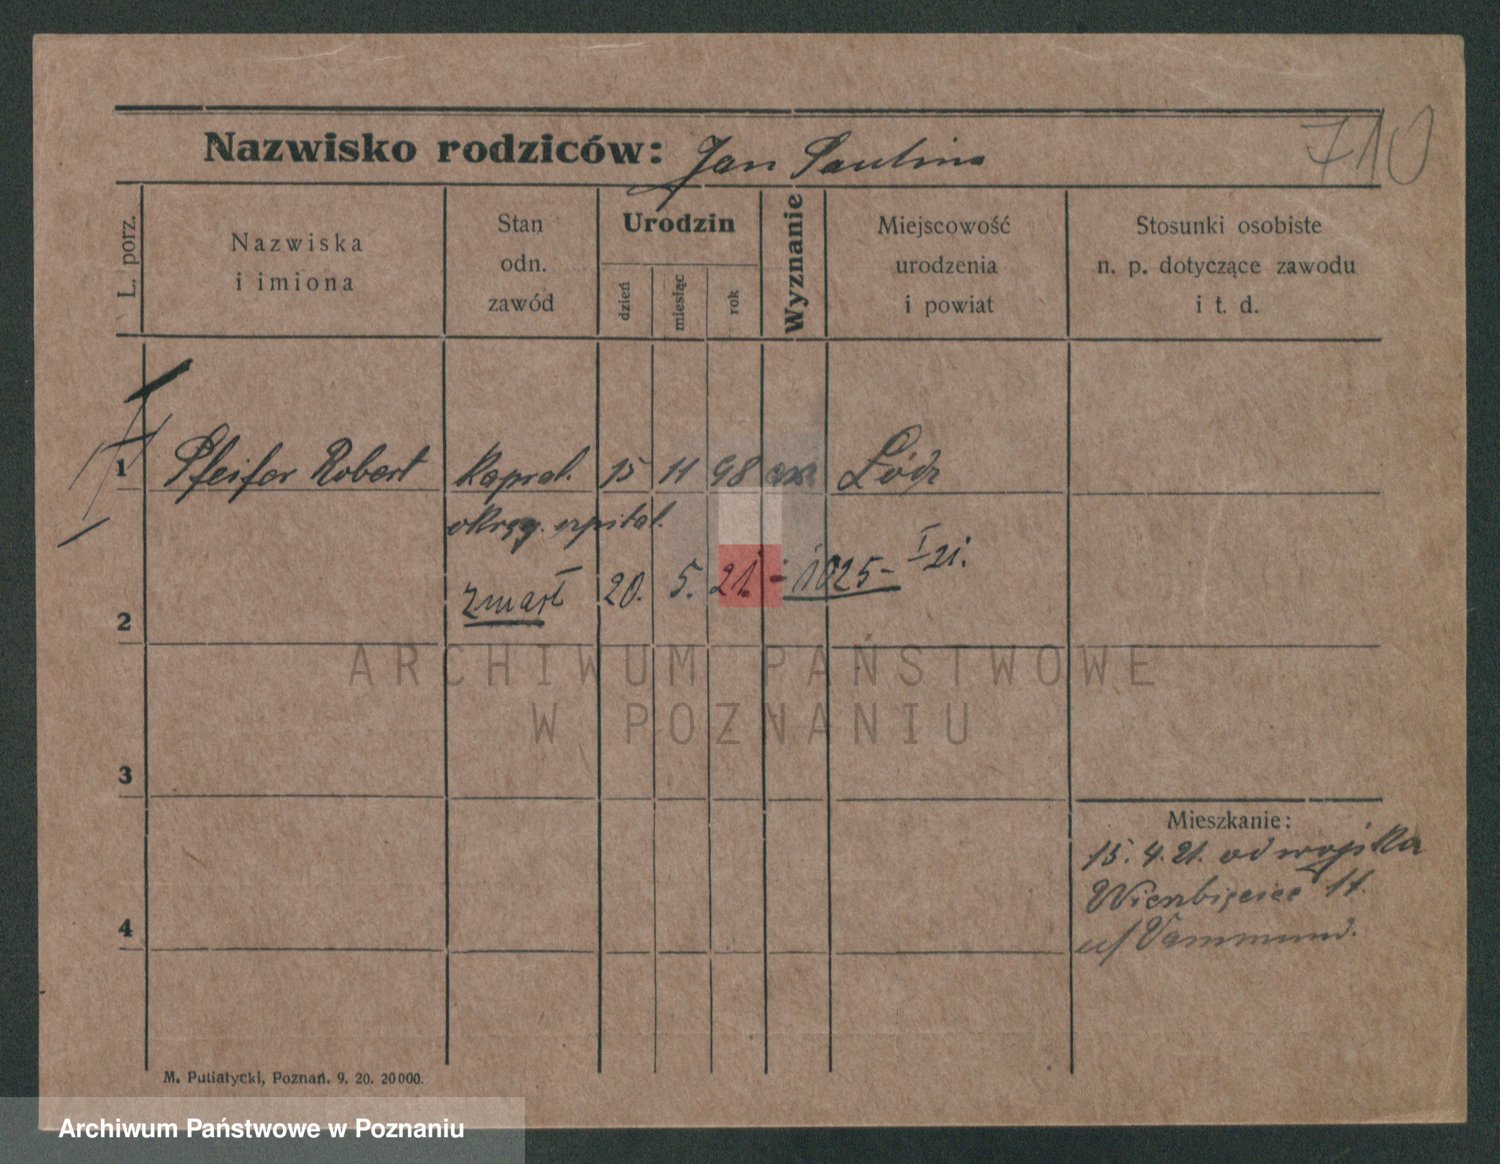 710
Nazwisko rodziców: Jan Paulina
L. porz.
Nazwiska
i imiona
Stan
odn.
zawód
Urodzin
dzień
miesiąc
rok
Wyznanie
Miejscowość
urodzenia
i powiat
Stosunki osobiste
n. p. dotyczące zawodu
i t. d.
1 Pfeifer Robert kapral. 15 11 98 Łódz
okręg. szpital.
2 zmarł 20. 5. 21. - 1025 - I 21.
ARCHIWUM PAŃSTWOWE
W POZNANIU
3
Mieszkanie:
15. 4. 21. od wojska
Wierzbięcice 14.
4
M. Putiatycki, Poznań. 9. 20. 20000.
Archiwum Państwowe w Poznaniu